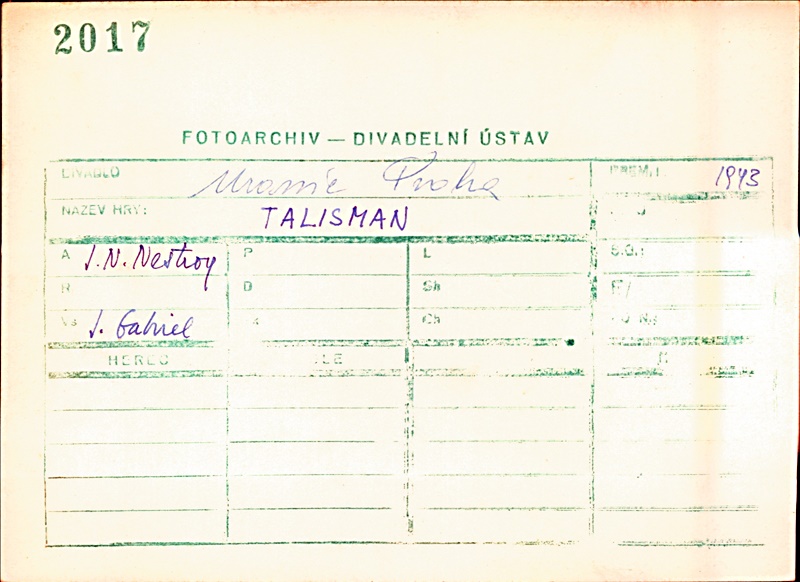 2017
FOTOARCHIV — DIVADELNÍ ÚSTAV
DIVADLO Uranie Praha PREM.: 1943
NÁZEV HRY: TALISMAN
A J. N. Nestroy P L S.O.:
R D Sb F/
Vs J. Gabriel Ch
HEREC